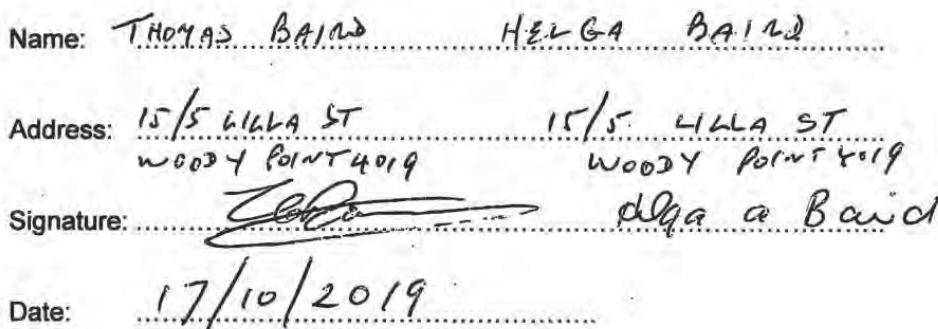 Name: THOMAS BAIRD HELGA BAIRD
Address: 15/5 LILLA ST 15/5 LILLA ST
WOODY POINT 4019 WOODY POINT 4019
Signature: a Baird
Date: 17/10/2019